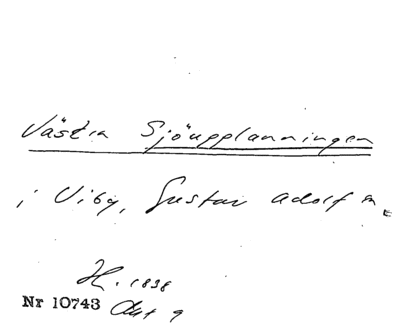 Västra Sjöupplanningen
i Viby, Gustav Adolf sn.
H. 1838
Nr 10743 Akt 9